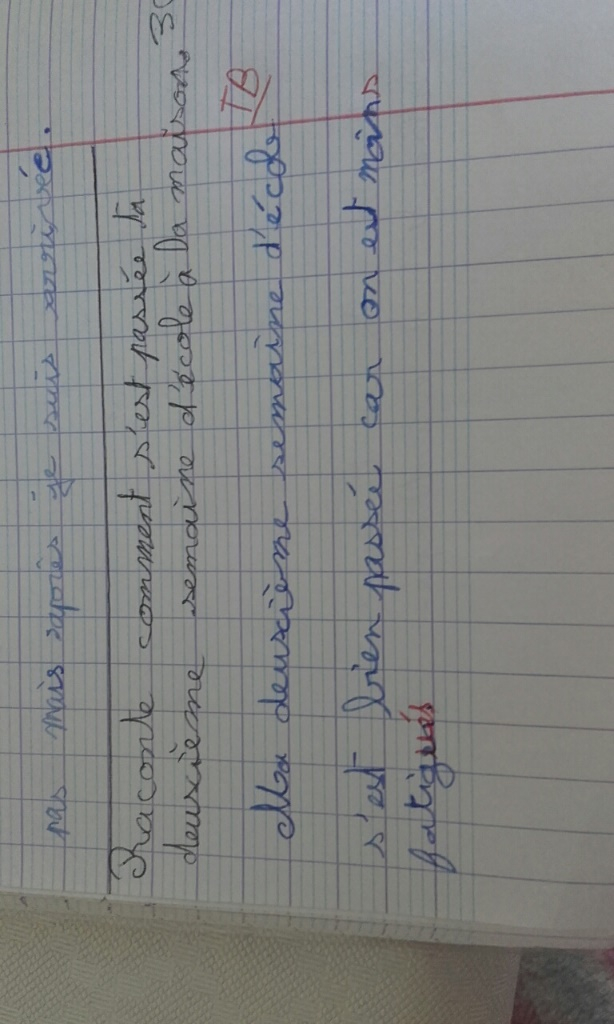 pas mais après je suis arrivée.
Raconte comment s'est passée ta
deuxième semaine d'école à la maison. 30
TB
Ma deuxième semaine d'école
s'est bien passée car on est moins
fatigués